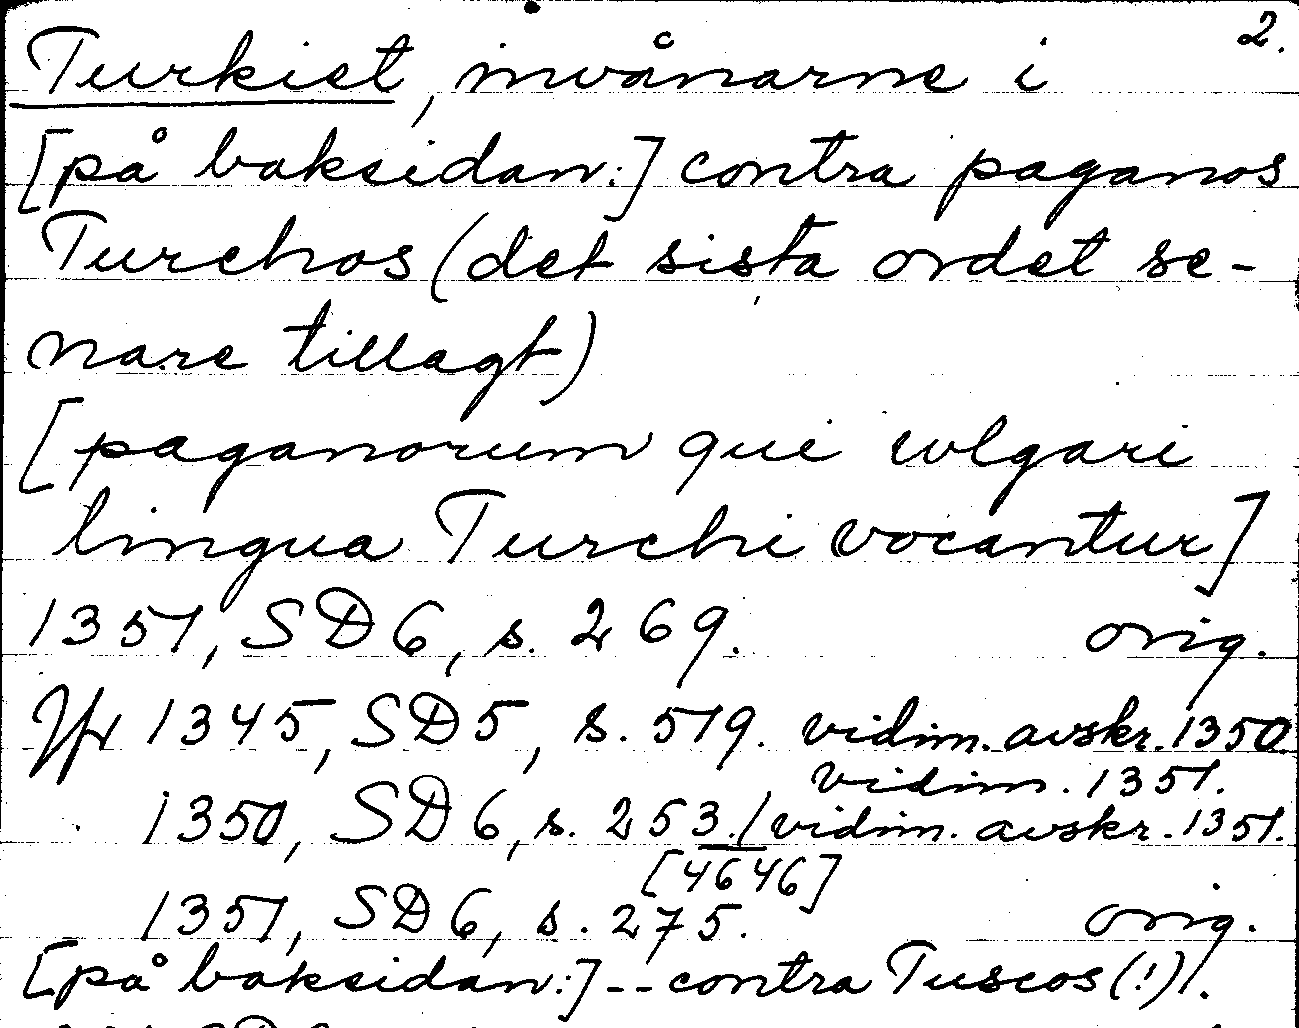 2.
Turkiet, invånarne i
[på baksidan:] contra paganos
Turchos (det sista ordet se-
nare tillagt)
[paganorum qui wlgari
lingua Turchi vocantur]
1351, SD 6, s. 269. orig.
Jfr 1345, SD 5, s. 519. vidim. avskr. 1350
vidim. 1351.
1350, SD 6, s. 253./vidim. avskr. 1351.
[4646]
1351, SD 6, s. 275. orig.
[på baksidan:] -- contra Tuscos (!)/.